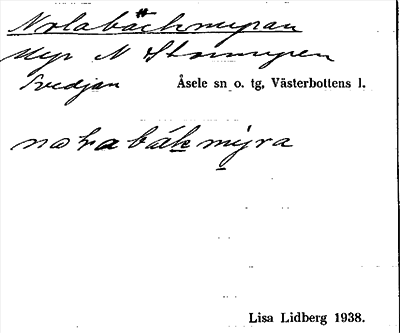 Nolabäckmyran
Myr N Stormyren
Svedjan Åsele sn o. tg, Västerbottens l.
Lisa Lidberg 1938.